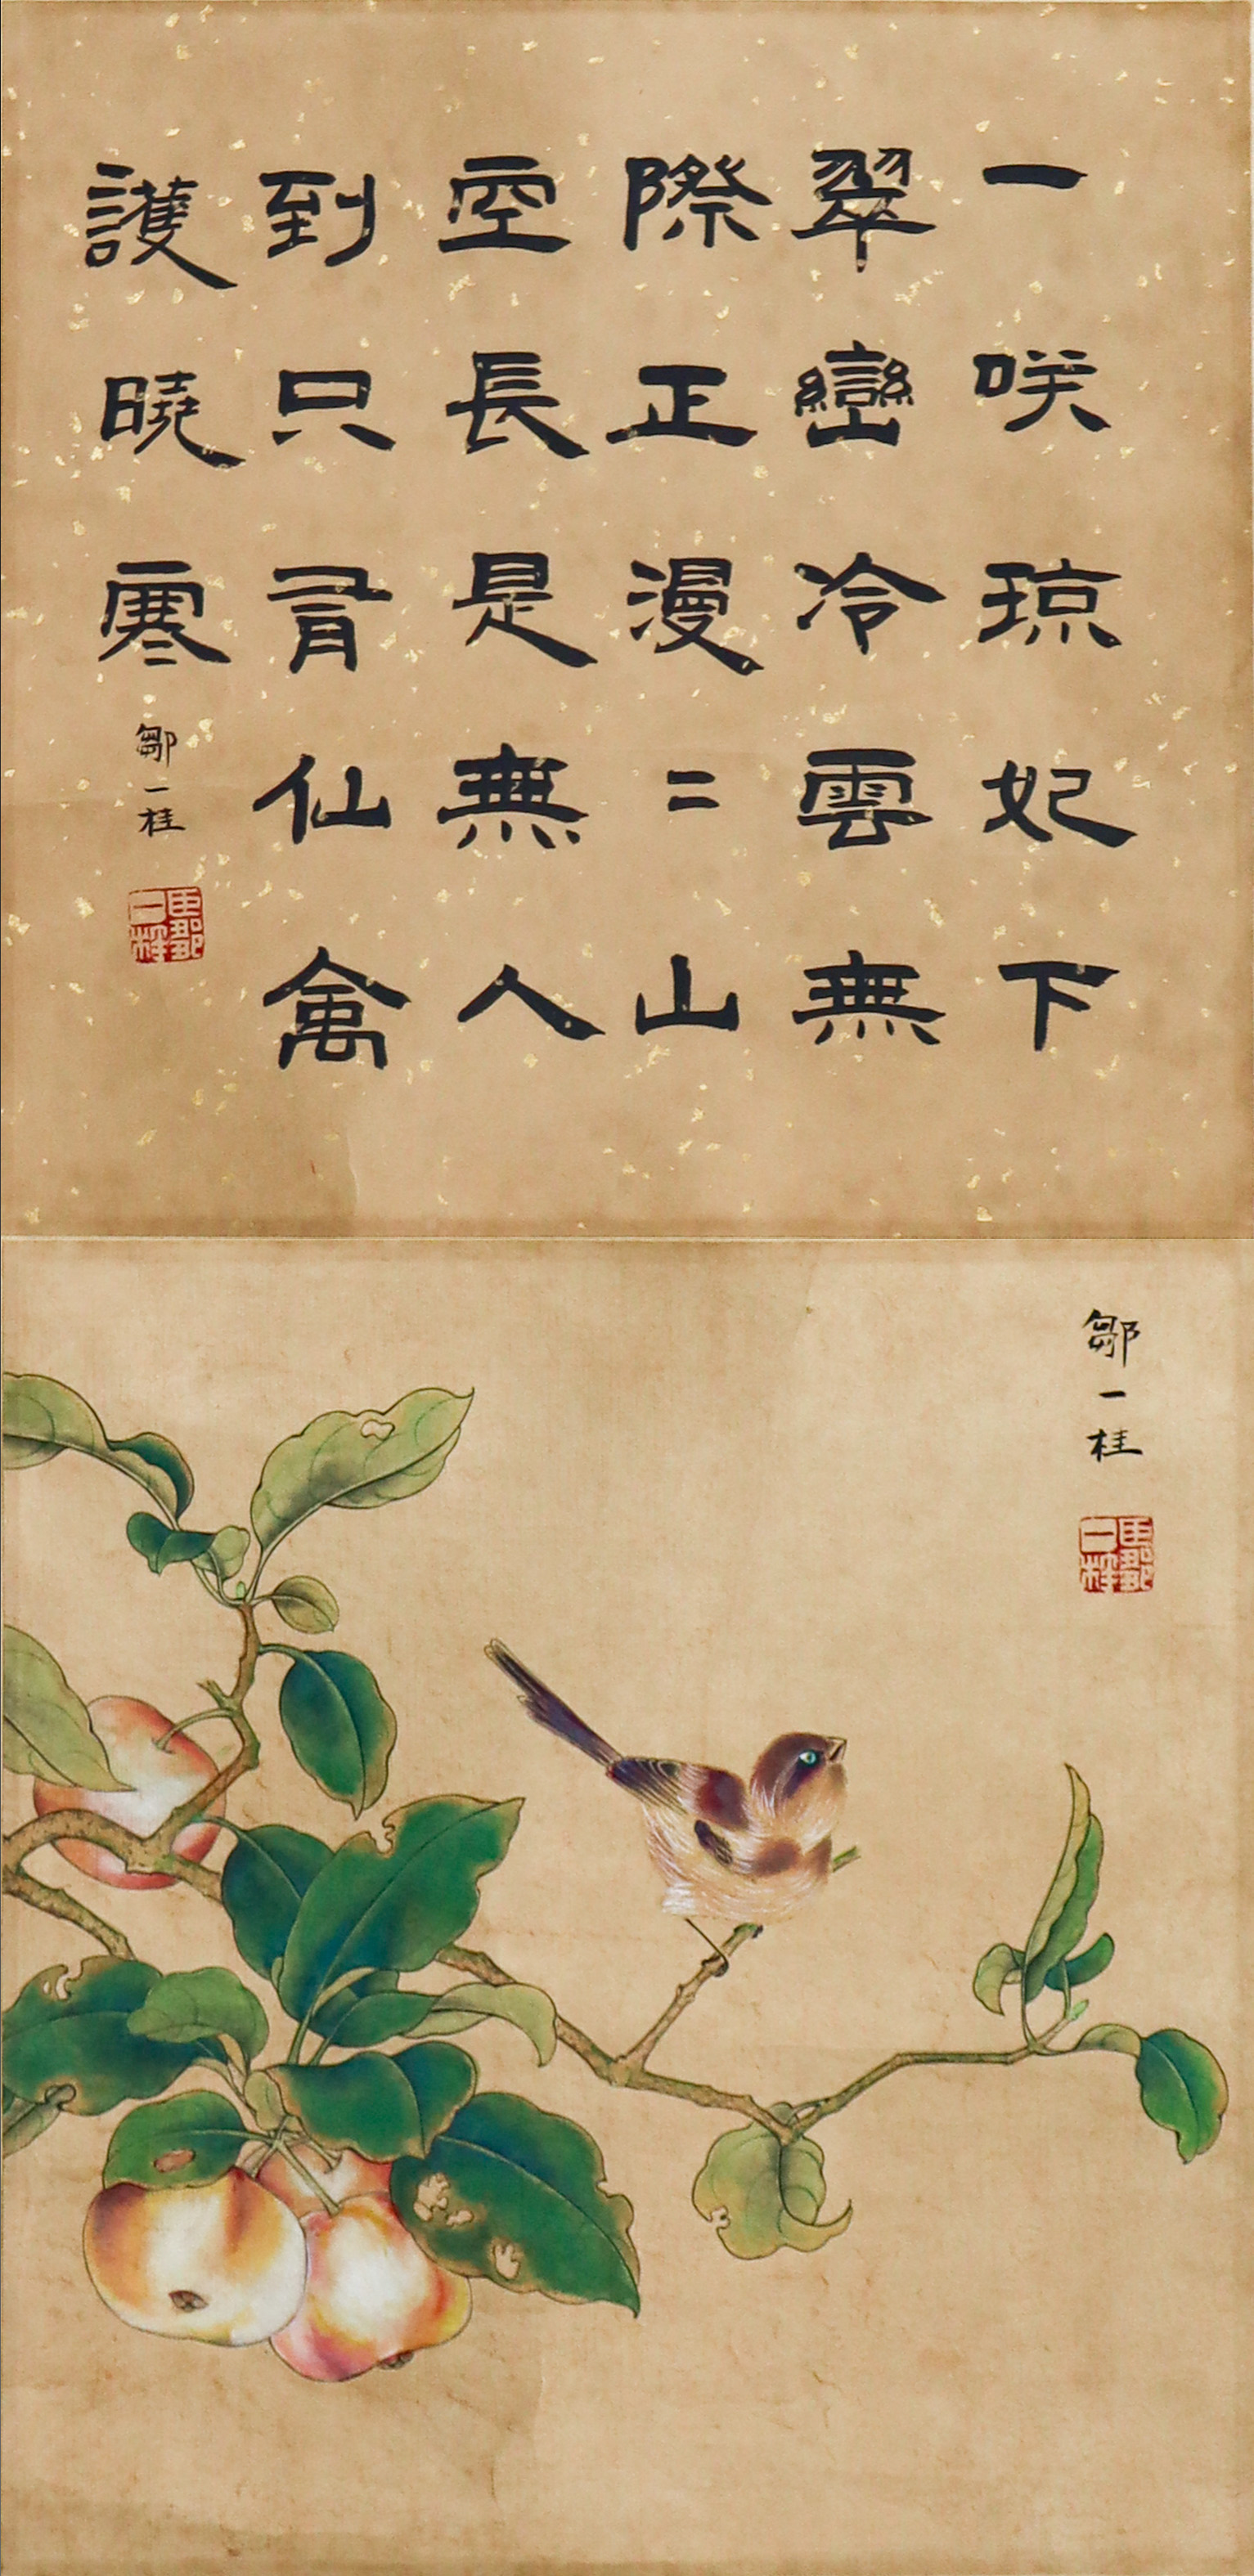 一咲琼妃下
翠巒冷雲無
際正漫二山
空長是無人
到只有仙禽
護曉寒
鄒一桂
臣鄒一桂
鄒一桂
臣鄒一桂